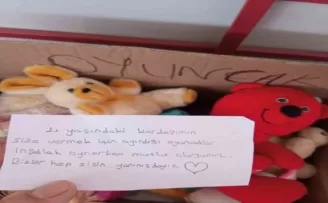 OYUNCAK
11 yaşındaki kardeşinin
size vermek için ayırdığı oyuncaklar
İnşallah oynarken mutlu olursunuz.
Bizler hep sizin yanınızdayız